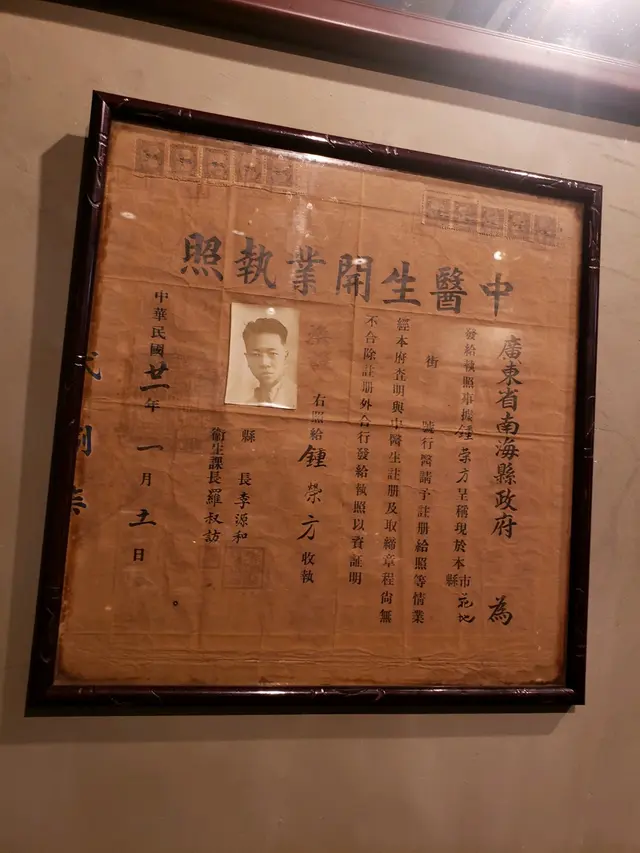 中醫生開業執照
廣東省南海縣政府 為
發給執照事據鍾榮方呈稱現於本市縣花地
街 號行醫請予註册給照等情業
經本府查明與中醫生註册及取締章程尙無
不合除註册外合行發給執照以資証明
右照給鍾榮方收執
縣長李源和
衛生課長羅叔訪
中華民國廿一年一月 日